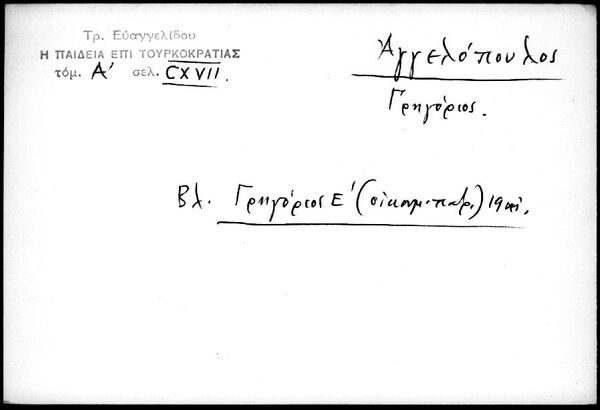 Τρ. Εὐαγγελίδου
Η ΠΑΙΔΕΙΑ ΕΠΙ ΤΟΥΡΚΟΚΡΑΤΙΑΣ
τόμ. Α' σελ. CXVII.
Ἀγγελόπουλος
Γρηγόριος.
Βλ. Γρηγόριος Ε' (οἰκουμ. πατρ.)